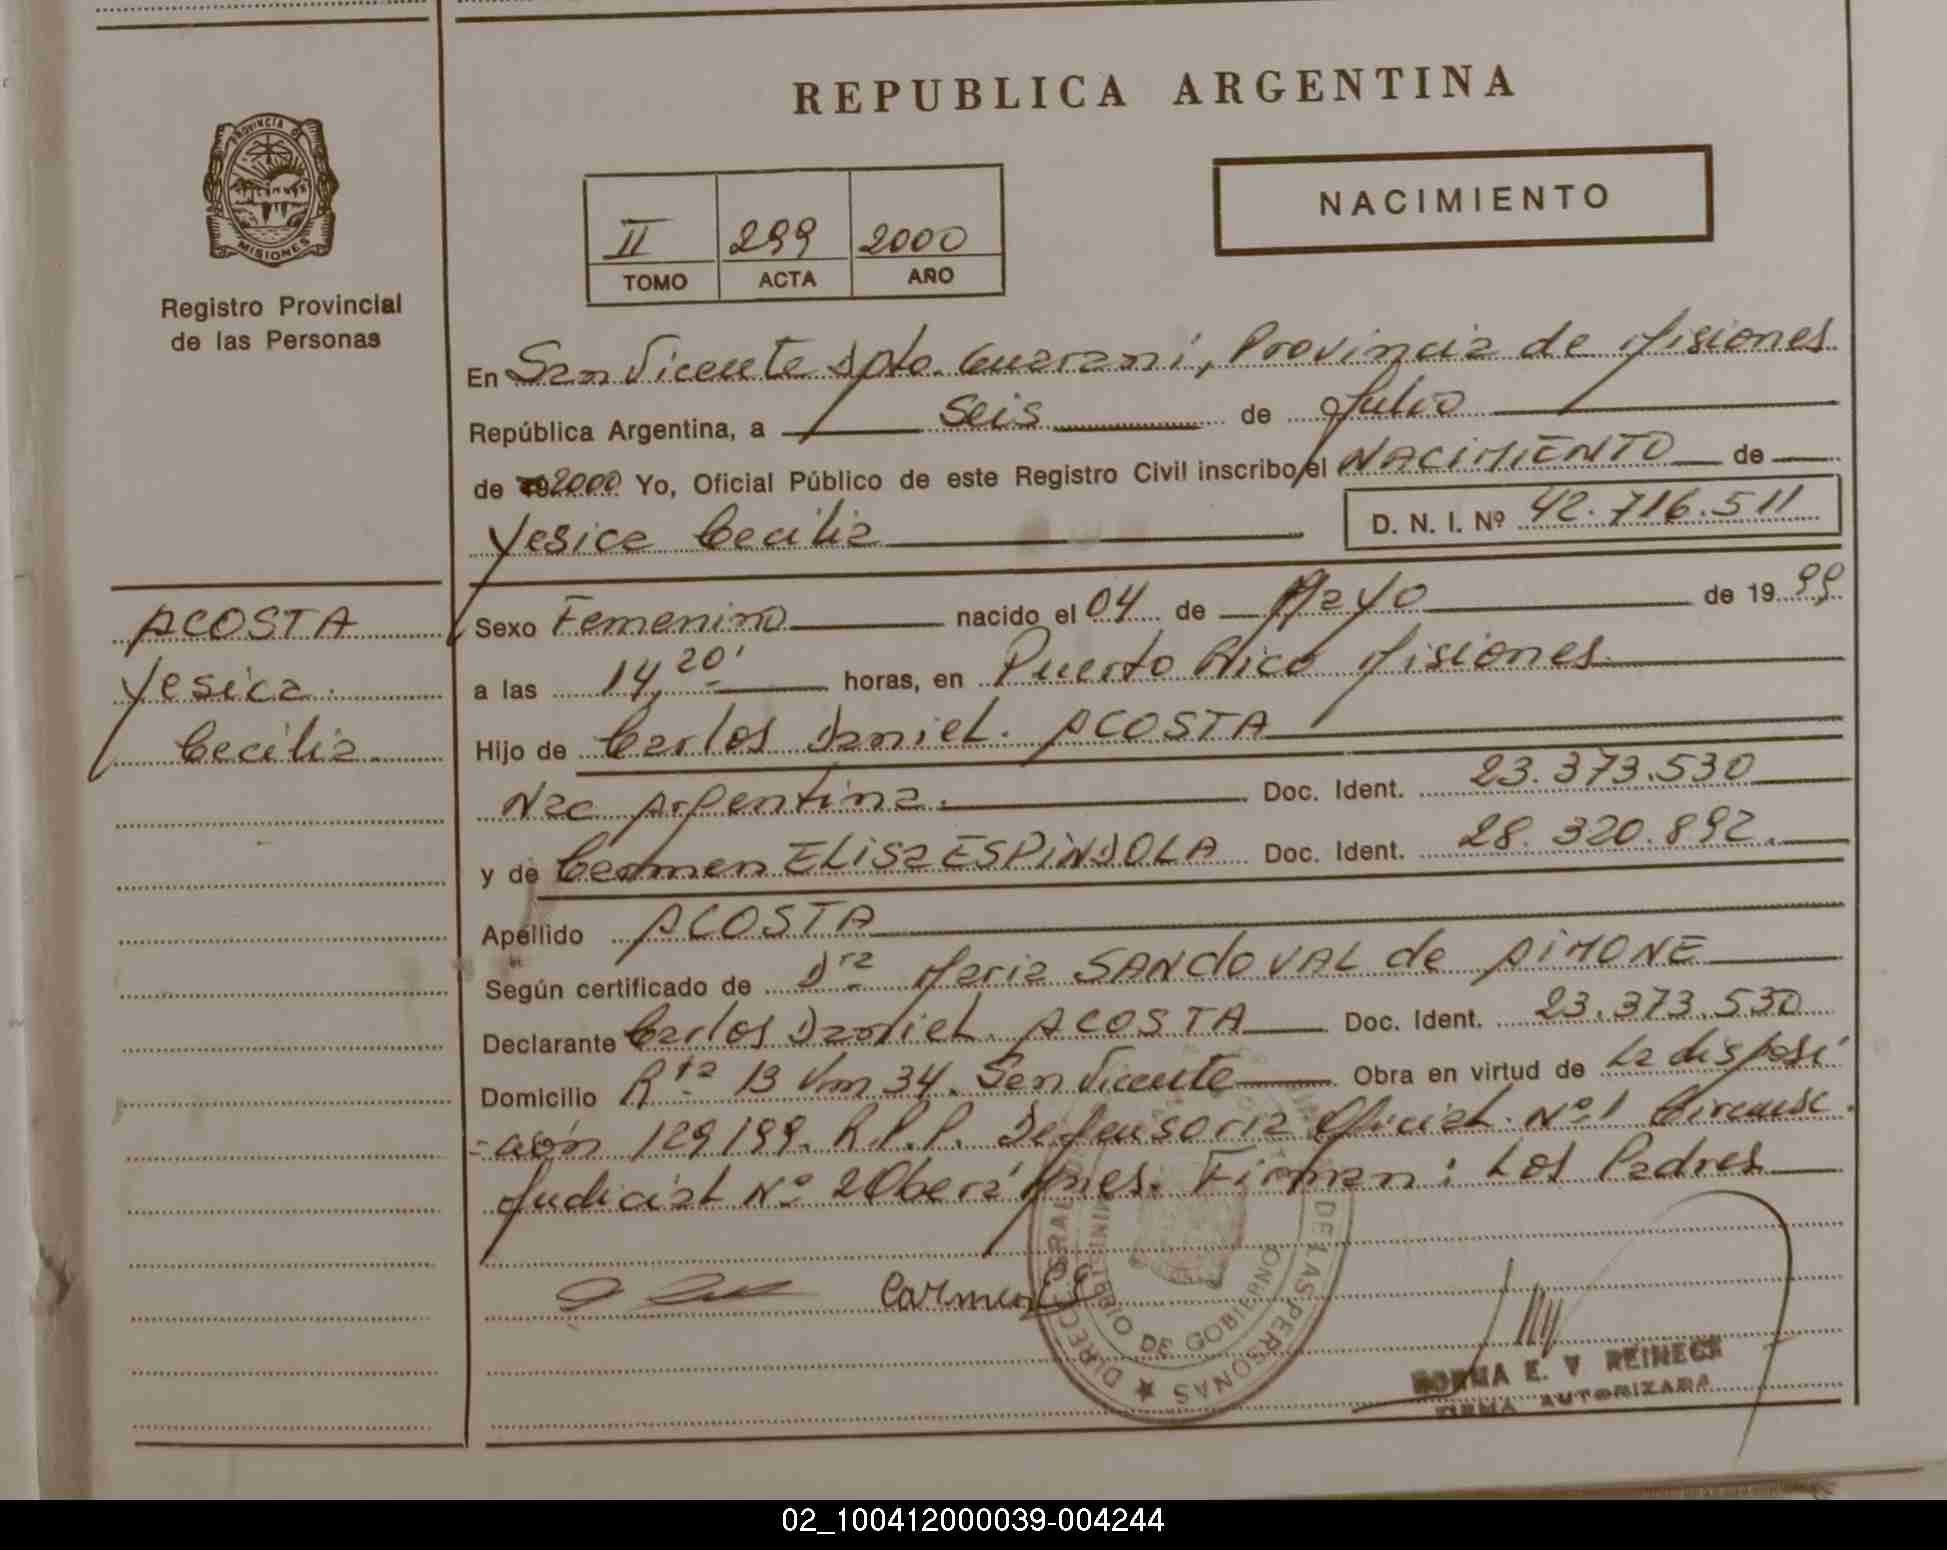 PROVINCIA DE
MISIONES
Registro Provincial
de las Personas
REPUBLICA ARGENTINA
NACIMIENTO
II 299 2000
TOMO ACTA AÑO
En San Vicente Dpto. Guaraní, Provincia de Misiones
República Argentina, a Seis de Julio
de 2000 Yo, Oficial Público de este Registro Civil inscribo el NACIMIENTO de
Yesica Cecilia D. N. I. Nº 42.716.511
ACOSTA
Yesica
Cecilia
Sexo Femenino nacido el 04 de Mayo de 1999
a las 14,20' horas, en Puerto Rico Misiones
Hijo de Carlos Daniel. ACOSTA
Nac Argentina. Doc. Ident. 23.373.530
y de Carmen ELISA ESPINDOLA Doc. Ident. 28.320.892.
Apellido ACOSTA
Según certificado de Dra Maria SANDOVAL de AIMONE
Declarante Carlos Daniel. ACOSTA Doc. Ident. 23.373.530
Domicilio Rta 13 Km 34. San Vicente Obra en virtud de La disposi
-ción 129/99. R.P.P. Defensoria Oficial. Nº1 Circunsc.
Judicial Nº 2 Oberá Mnes. Firman: Los Padres
Carmen
DE LAS PERSONAS ★ DIREC
MINISTERIO DE GOBIERNO
NORMA E. V REINECK
FIRMA AUTORIZADA
02_100412000039-004244